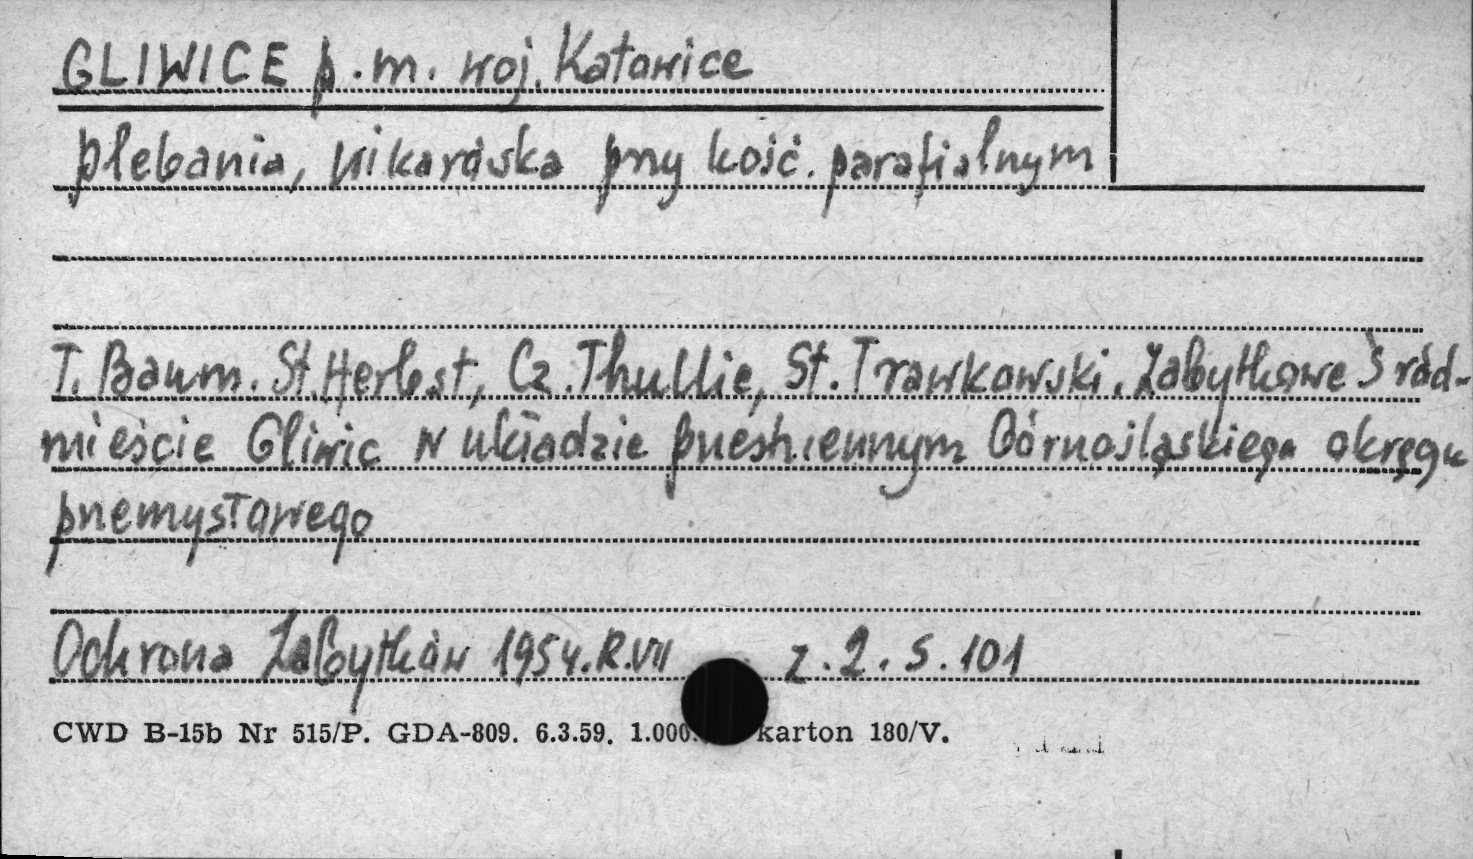 GLIWICE p.m. woj. Katowice
plebania, wikarówska przy kość. parafialnym
T. Baum. St. Herbst, Cz. Thullie, St. Trawkowski. Zabytkowe Śród-
mieście Gliwic w układzie przestrzennym Górnośląskiego okręgu
przemysłowego
Ochrona Zabytków 1954. R. VII z. 2. s. 101
CWD B-15b Nr 515/P. GDA-809. 6.3.59. 1.000. karton 180/V.